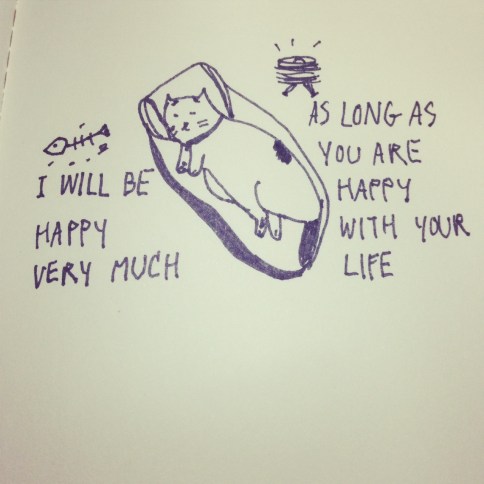 I WILL BE
HAPPY
VERY MUCH
AS LONG AS
YOU ARE
HAPPY
WITH YOUR
LIFE